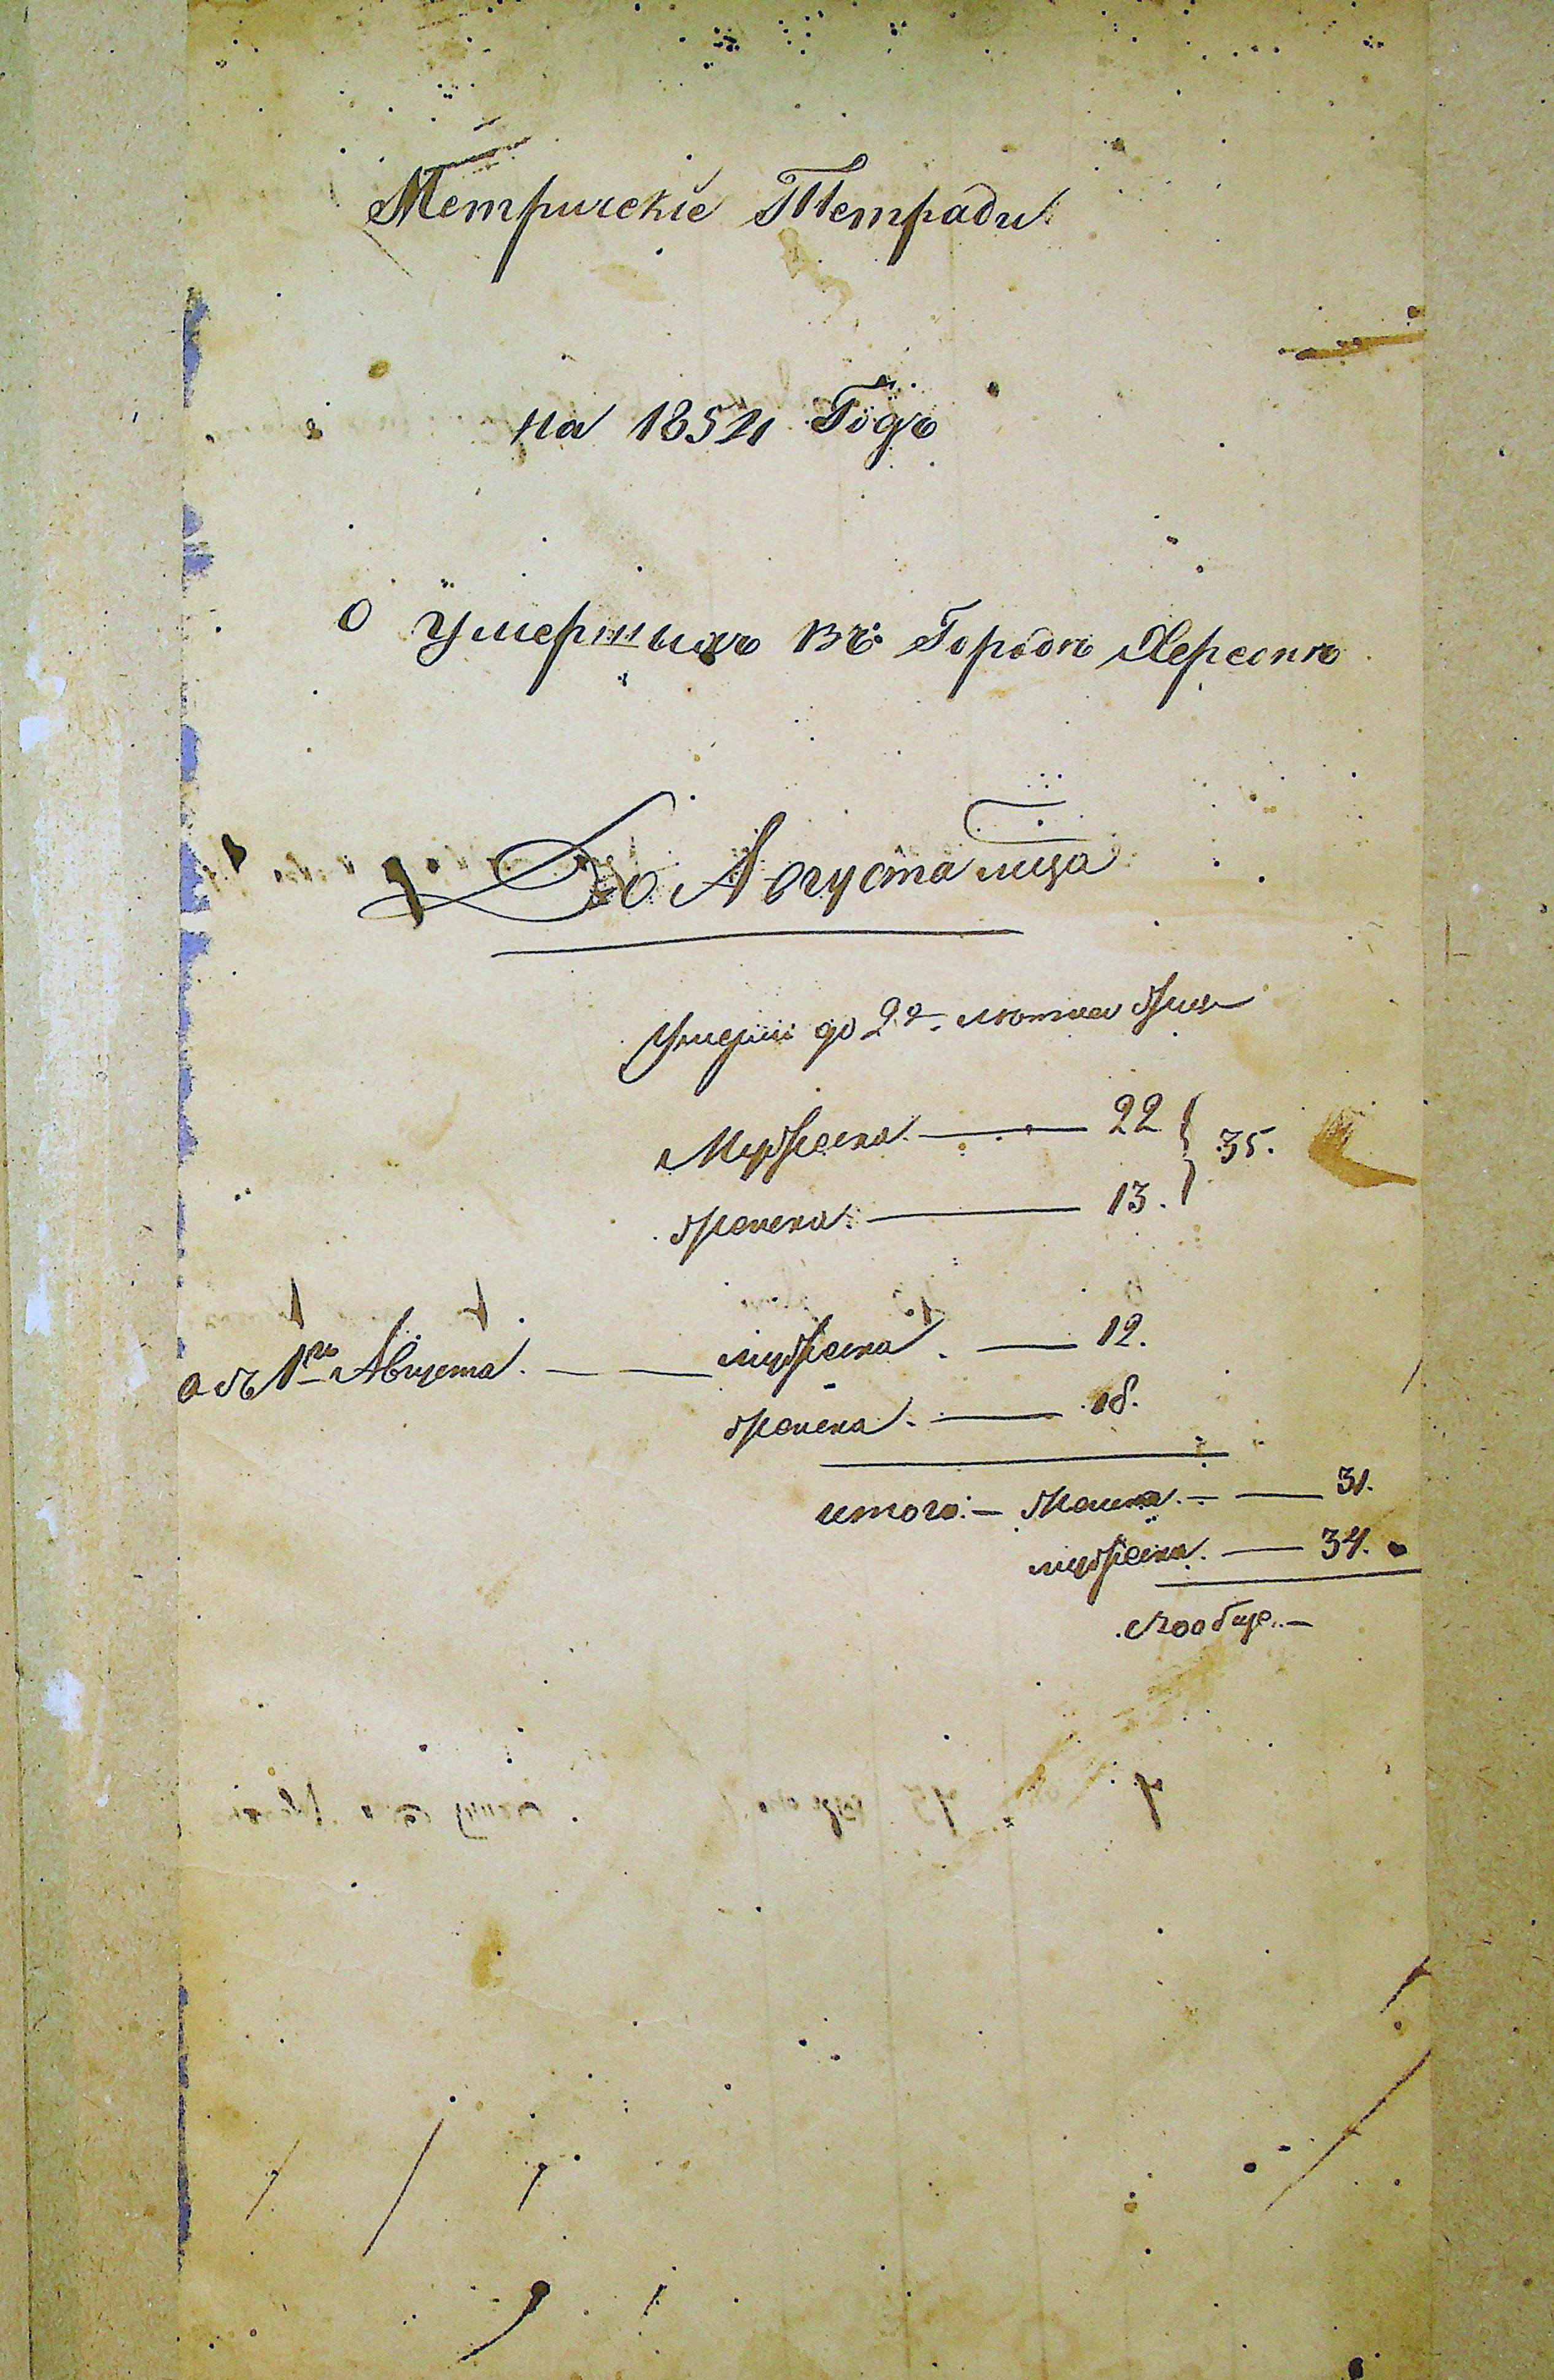 Метрическіе Тетради
на 1854 Годъ
о Умершыхъ въ Городѣ Херсонѣ
До Августа мца
Умерш: до 2го
Мужеска — 22
женска — 13. } 35.
а съ 1го Августа. — мужеска. — 12.
женска. — 18.
итого: — женска. — 31.
мужеска. — 34.
вообще. —